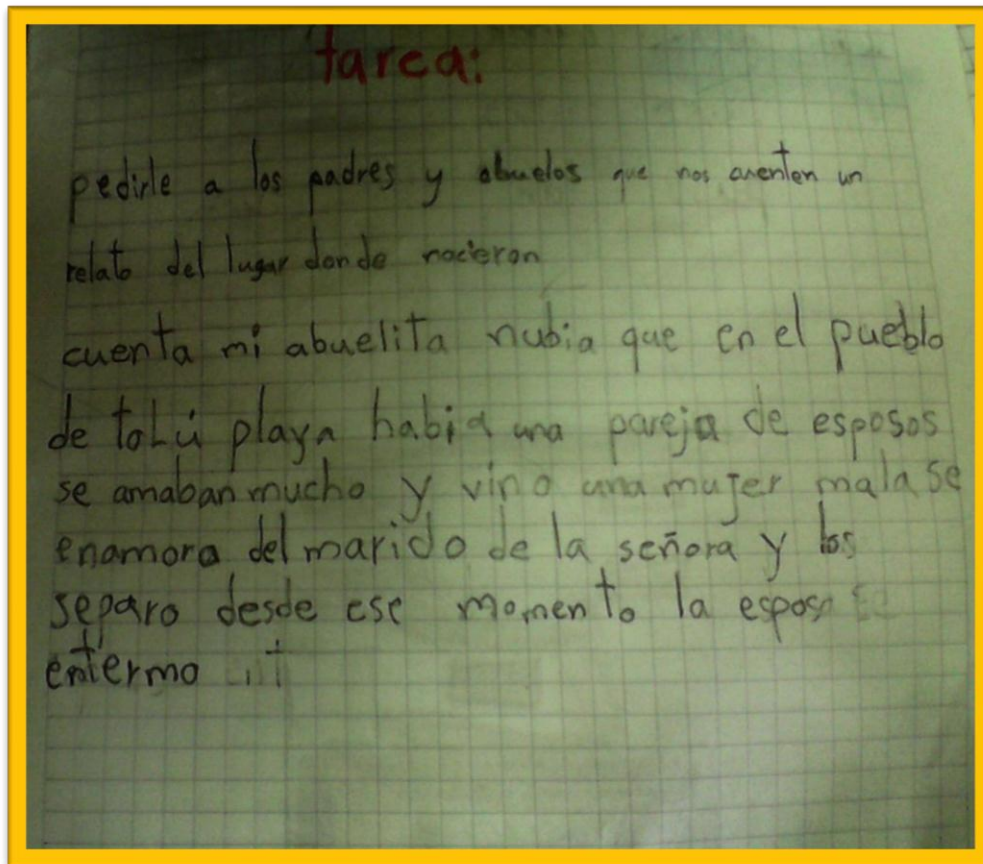 tarea:
pedirle a los padres y abuelos que nos cuenten un
relato del lugar donde nacieron
cuenta mi abuelita nubia que en el pueblo
de tolú playa habia una pareja de esposos
se amaban mucho y vino una mujer mala se
enamora del marido de la señora y los
separo desde ese momento la esposa se
enfermo